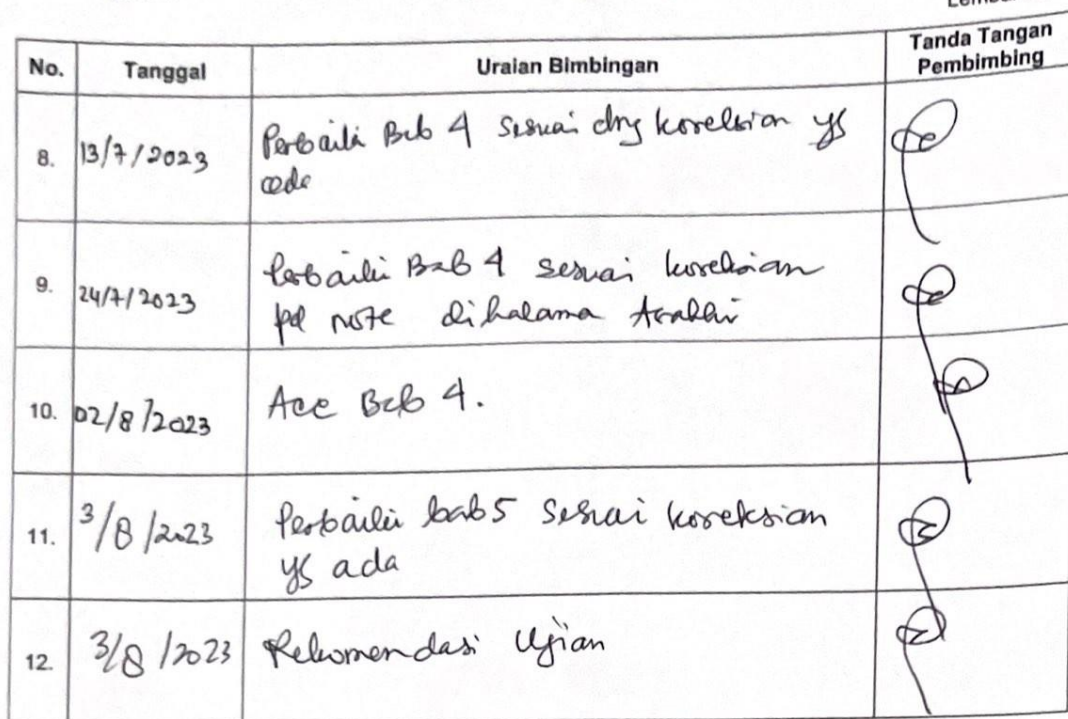 No. Tanggal Uraian Bimbingan Tanda Tangan
Pembimbing
8. 13/7/2023 Perbaiki Bab 4 sesuai dng koreksian yg
ada
9. 24/7/2023 Perbaiki Bab 4 sesuai koreksian
pd note dihalama terakhir
10. 02/8/2023 Acc Bab 4.
11. 3/8/2023 Perbaiki bab 5 sesuai koreksian
yg ada
12. 3/8/2023 Rekomendasi Ujian